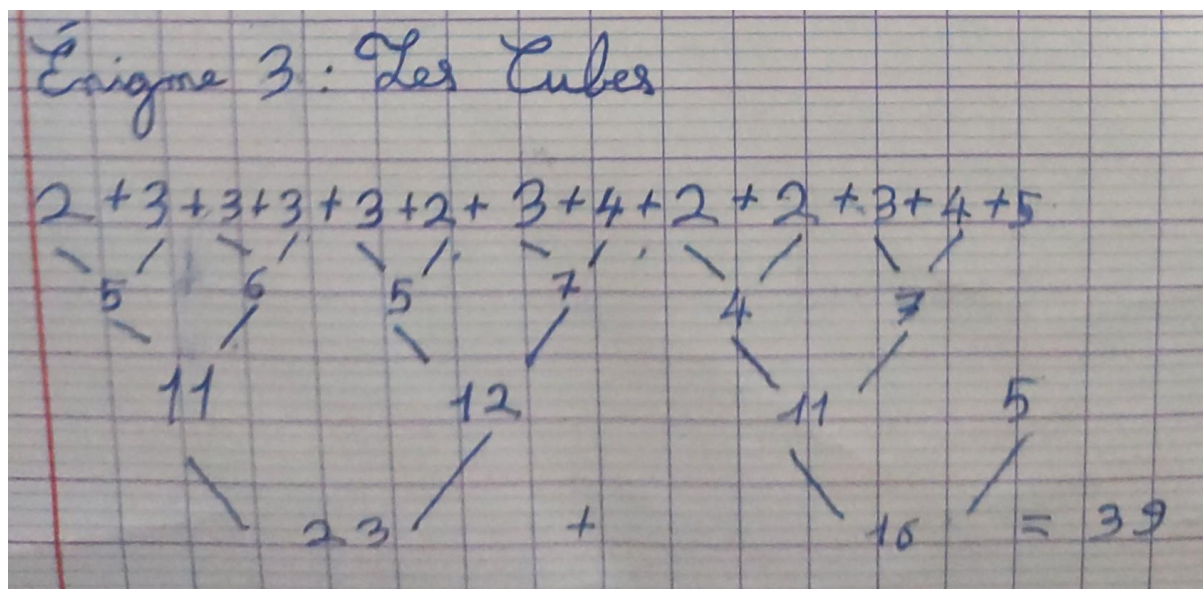 Énigme 3 : Les Cubes
2 + 3 + 3 + 3 + 3 + 2 + 3 + 4 + 2 + 2 + 3 + 4 + 5
5 6 5 7 4 7
11 12 11 5
23 + 16 = 39